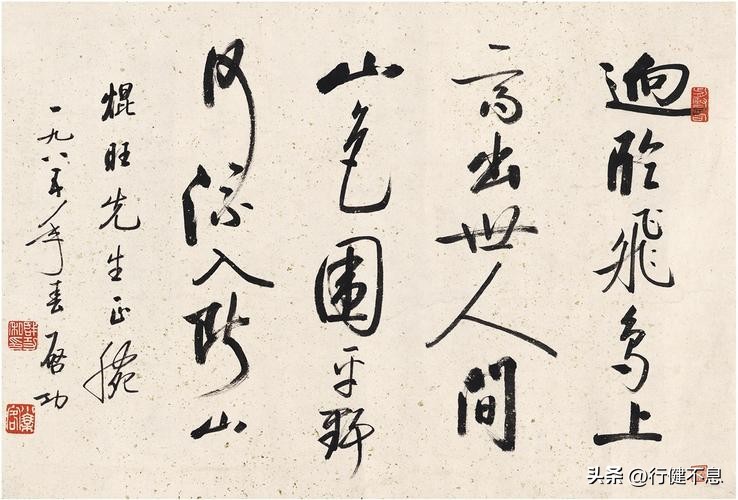 逈临飛鸟上
高出世人間
山色圍平野
河流入断山
焜旺先生正腕
一九八年春 启功
头条 @行健不息